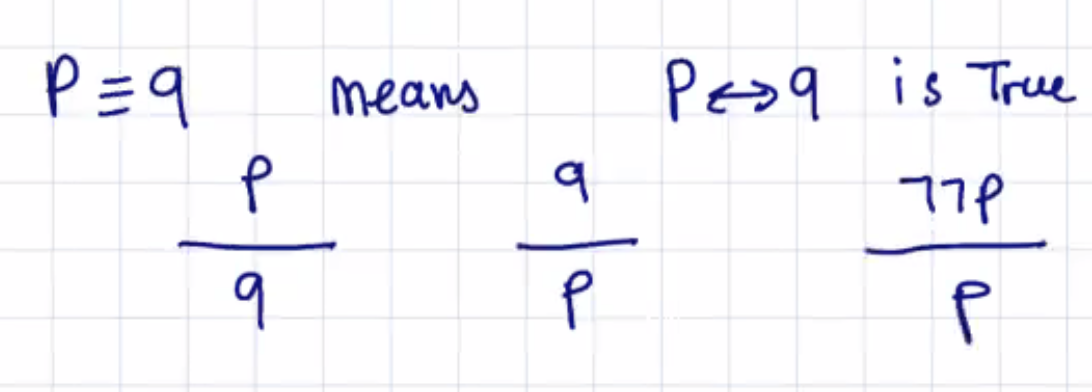 P ≡ q means P ↔ q is True
P q ¬¬P
q P P